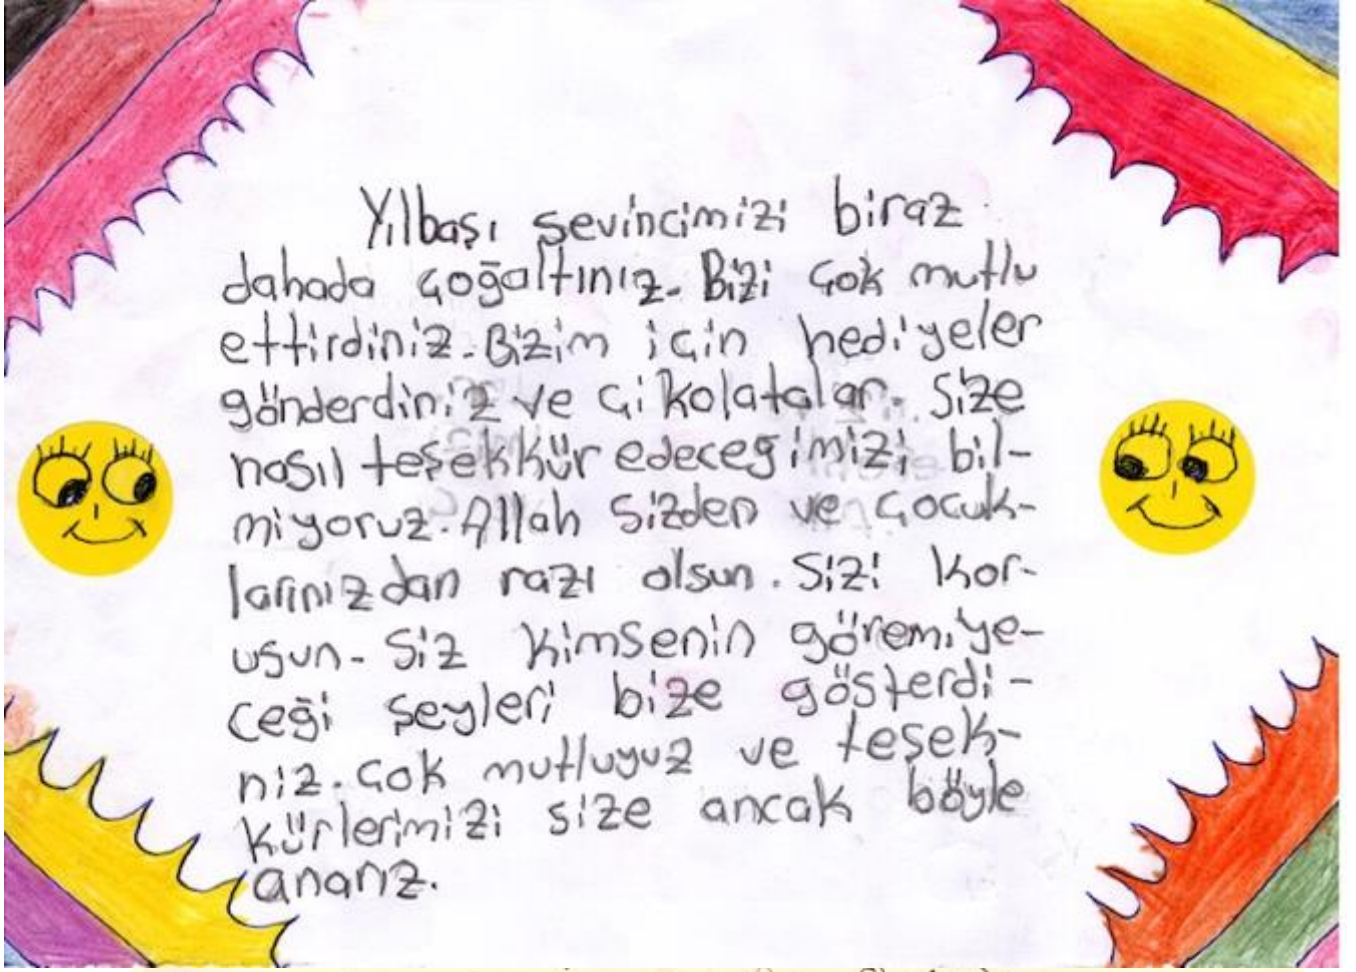 Yılbaşı sevincimizi biraz
dahada çoğaltınız. Bizi çok mutlu
ettirdiniz. Bizim için hediyeler
gönderdiniz ve çikolatalar. Size
nasıl teşekkür edecegimizi bil-
miyoruz. Allah sizden ve çocuk-
larınızdan razı olsun. Sizi kor-
usun. Siz kimsenin göremiye-
ceği şeyleri bize gösterdi-
niz. Çok mutluyuz ve teşek-
kürlerimizi size ancak böyle
ananz.